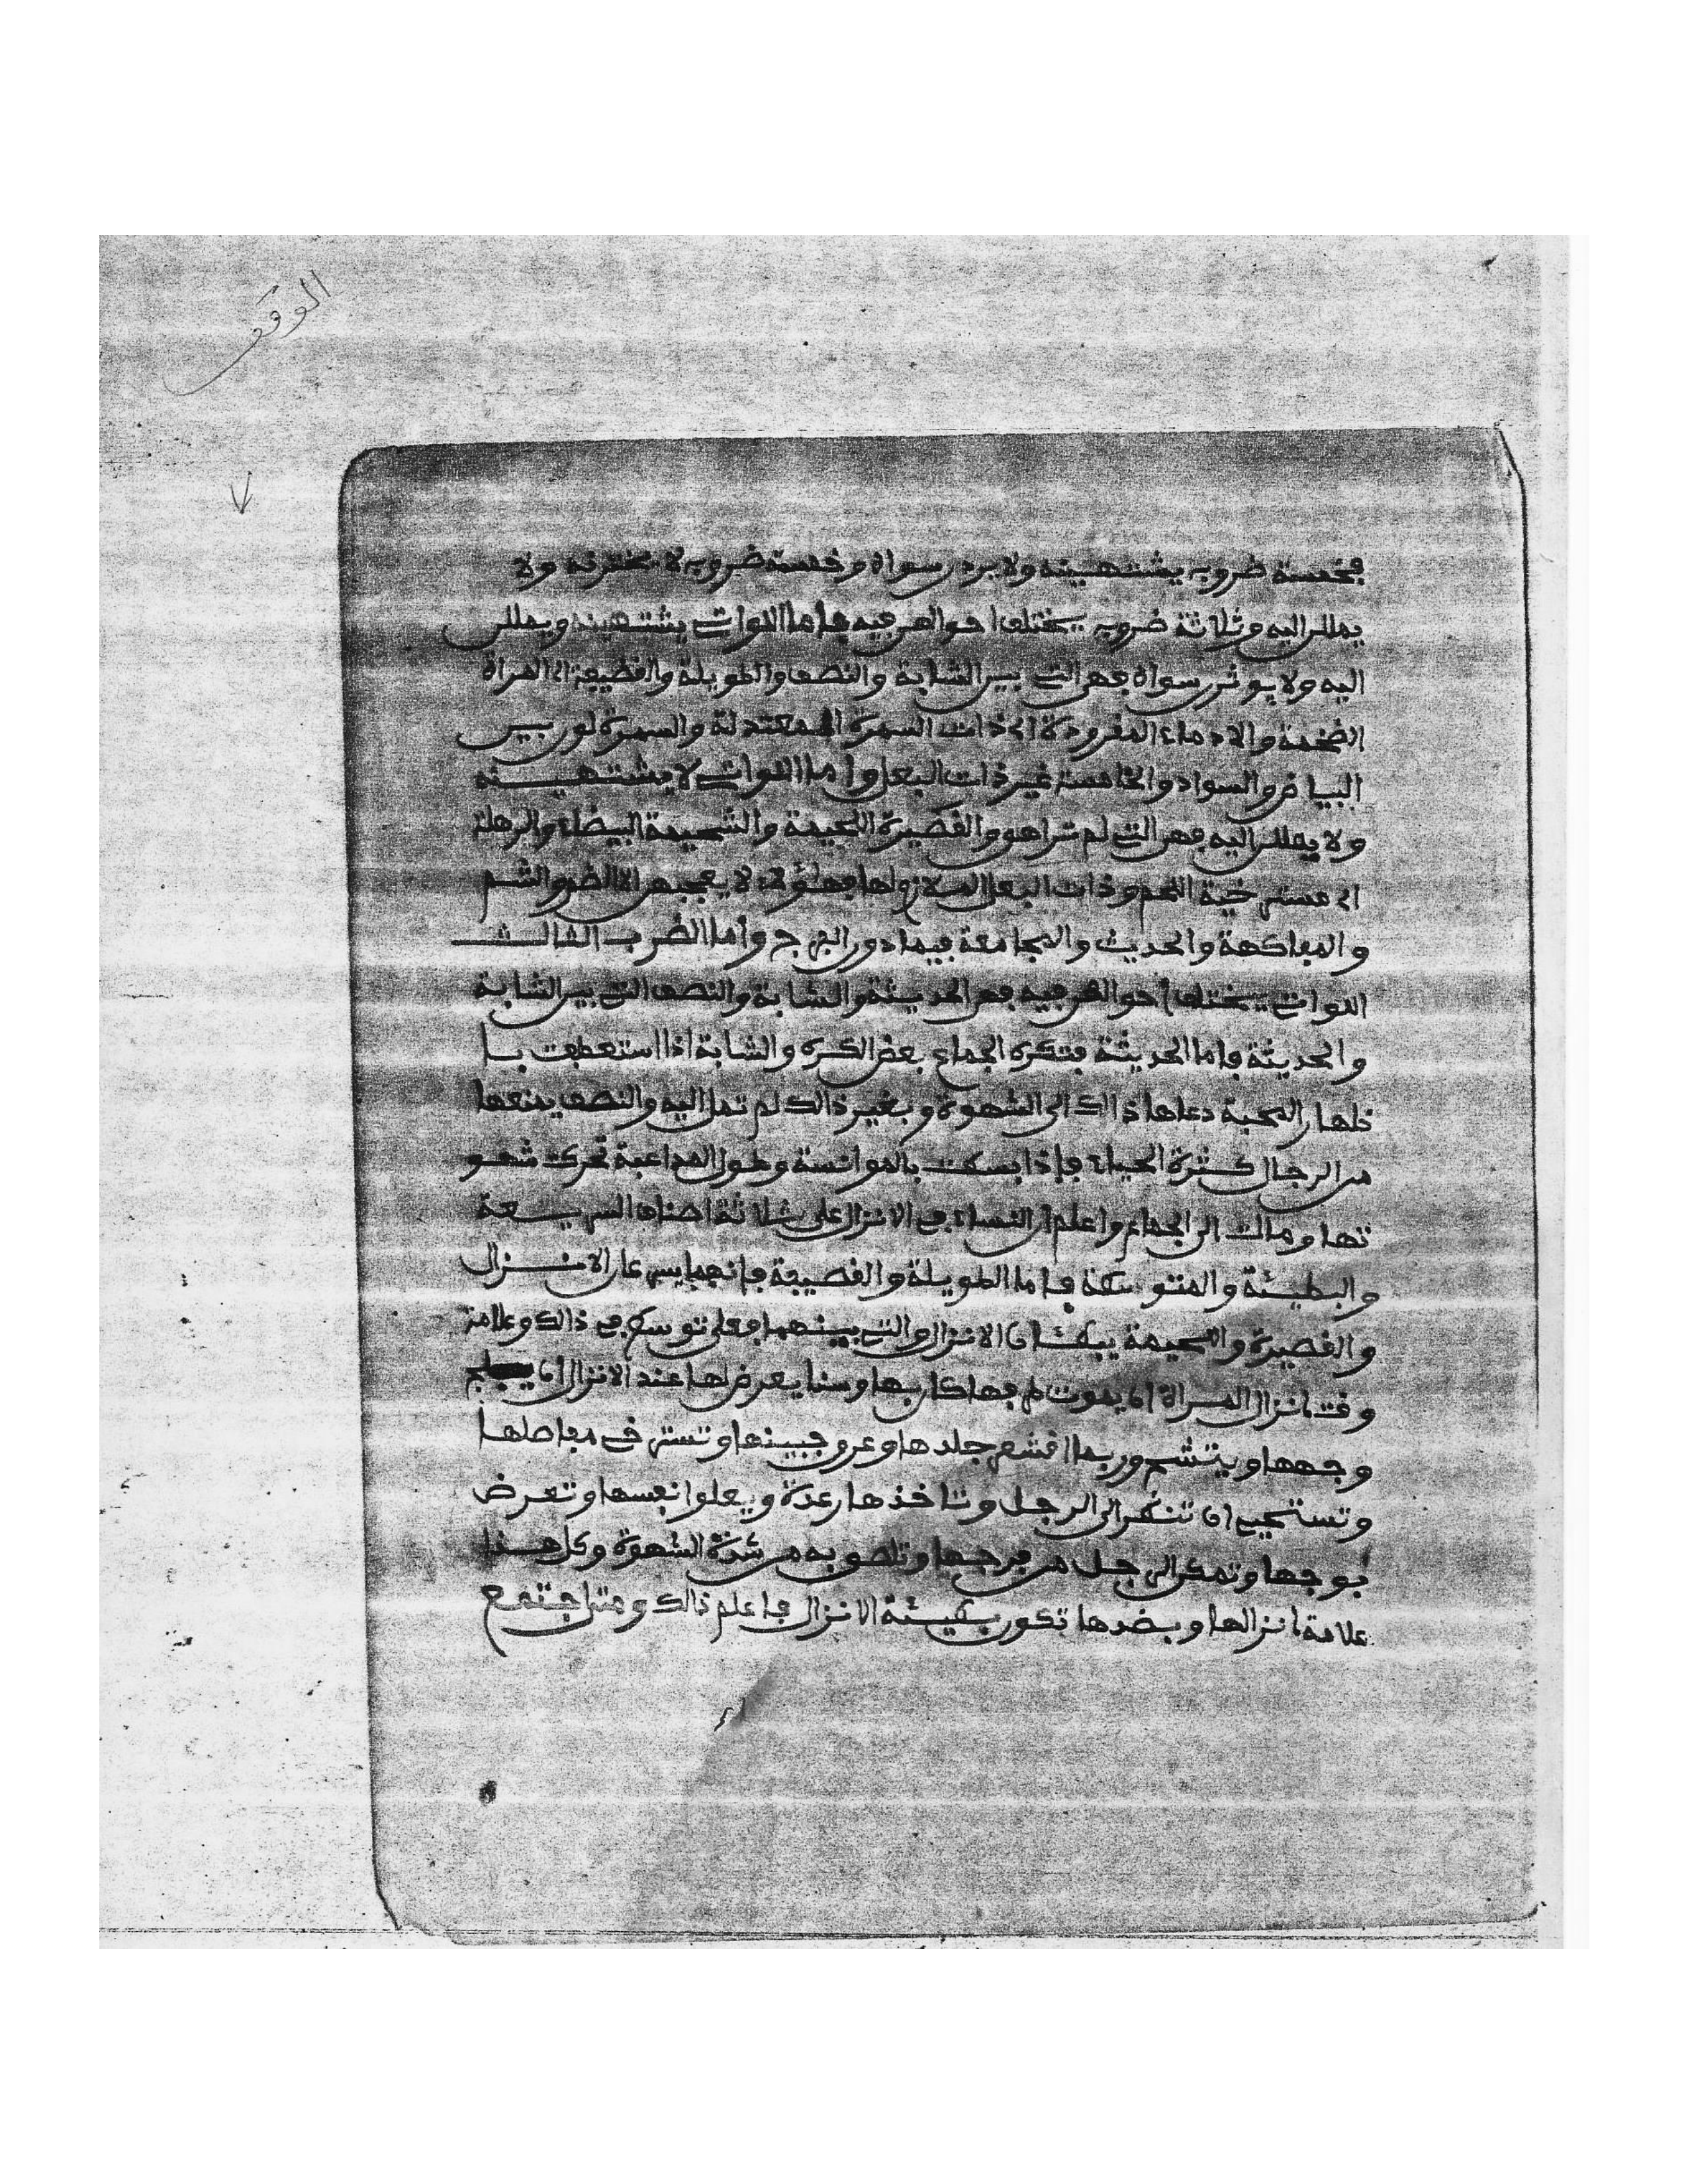 الوقف
فخمسة ضروب يشتهينه ولا يردن سواه وخمسة ضروب لا يخترنه ولا
يمللن اليه وثلاثة ضروب يختلف احوالهن فيه فاما اللواتي يشتهينه ويمللن
اليه ولا يوثرن سواه فهن التي بين الشابة والنصف والطويلة والقضيفة اي المراة
الضخمة والادماء المفرودة اي ذات السمرة المعتدلة والسمرة لون بين
البياض والسواد والخامسة غير ذات البعل واما اللواتي لا يشتهينه
ولا يمللن اليه فهن التي لم تراهق والقصيرة اللحيمة والشحيمة البيضاء والرهلة
اي مسترخية اللحم وذات البعل الملازم لها فهؤلاء لا يعجبهن الا الضم والشم
والمفاكهة والحديث والمجامعة فيما دون الفرج واما الضرب الثالث
اللواتي يختلف احوالهن فيه فهن الحديثة والشابة والنصف التي بين الشابة
والحديثة فاما الحديثة فتكره الجماع بعض الكره والشابة اذا استعطفت با
ظهار المحبة دعاها ذالك الى الشهوة وبغير ذالك لم تمل اليه والنصف يمنعها
من الرجال كثرة الحياء فاذا بسطت بالموانسة وطول المداعبة تحركت شهو
تها ومالت الى الجماع واعلم ان النساء في الانزال على ثلاثة اصناف السريعة
والبطيئة والمتوسطة فاما الطويلة والقضيفة فانهما يسرعان الانزال
والقصيرة واللحيمة يبطئان الانزال والتي بينهما فعلى توسط في ذالك وعلامة
وقت انزال المراة ان يموت طرفها كان بها وسنا يعرض لها عند الانزال ان يكلح
وجهها وينشم وربما اقشعر جلدها وعرق جبينها وتسترخي مفاصلها
وتستحيي ان تنظر الى الرجل وتاخذها رعدة ويعلوا نفسها وتعرض
بوجهها وتمكن الرجل من فرجها وتلصق به من شدة الشهوة وكل هذا
علامة انزالها وبضدها تكون بطيئة الانزال فاعلم ذالك ومتى اجتمع